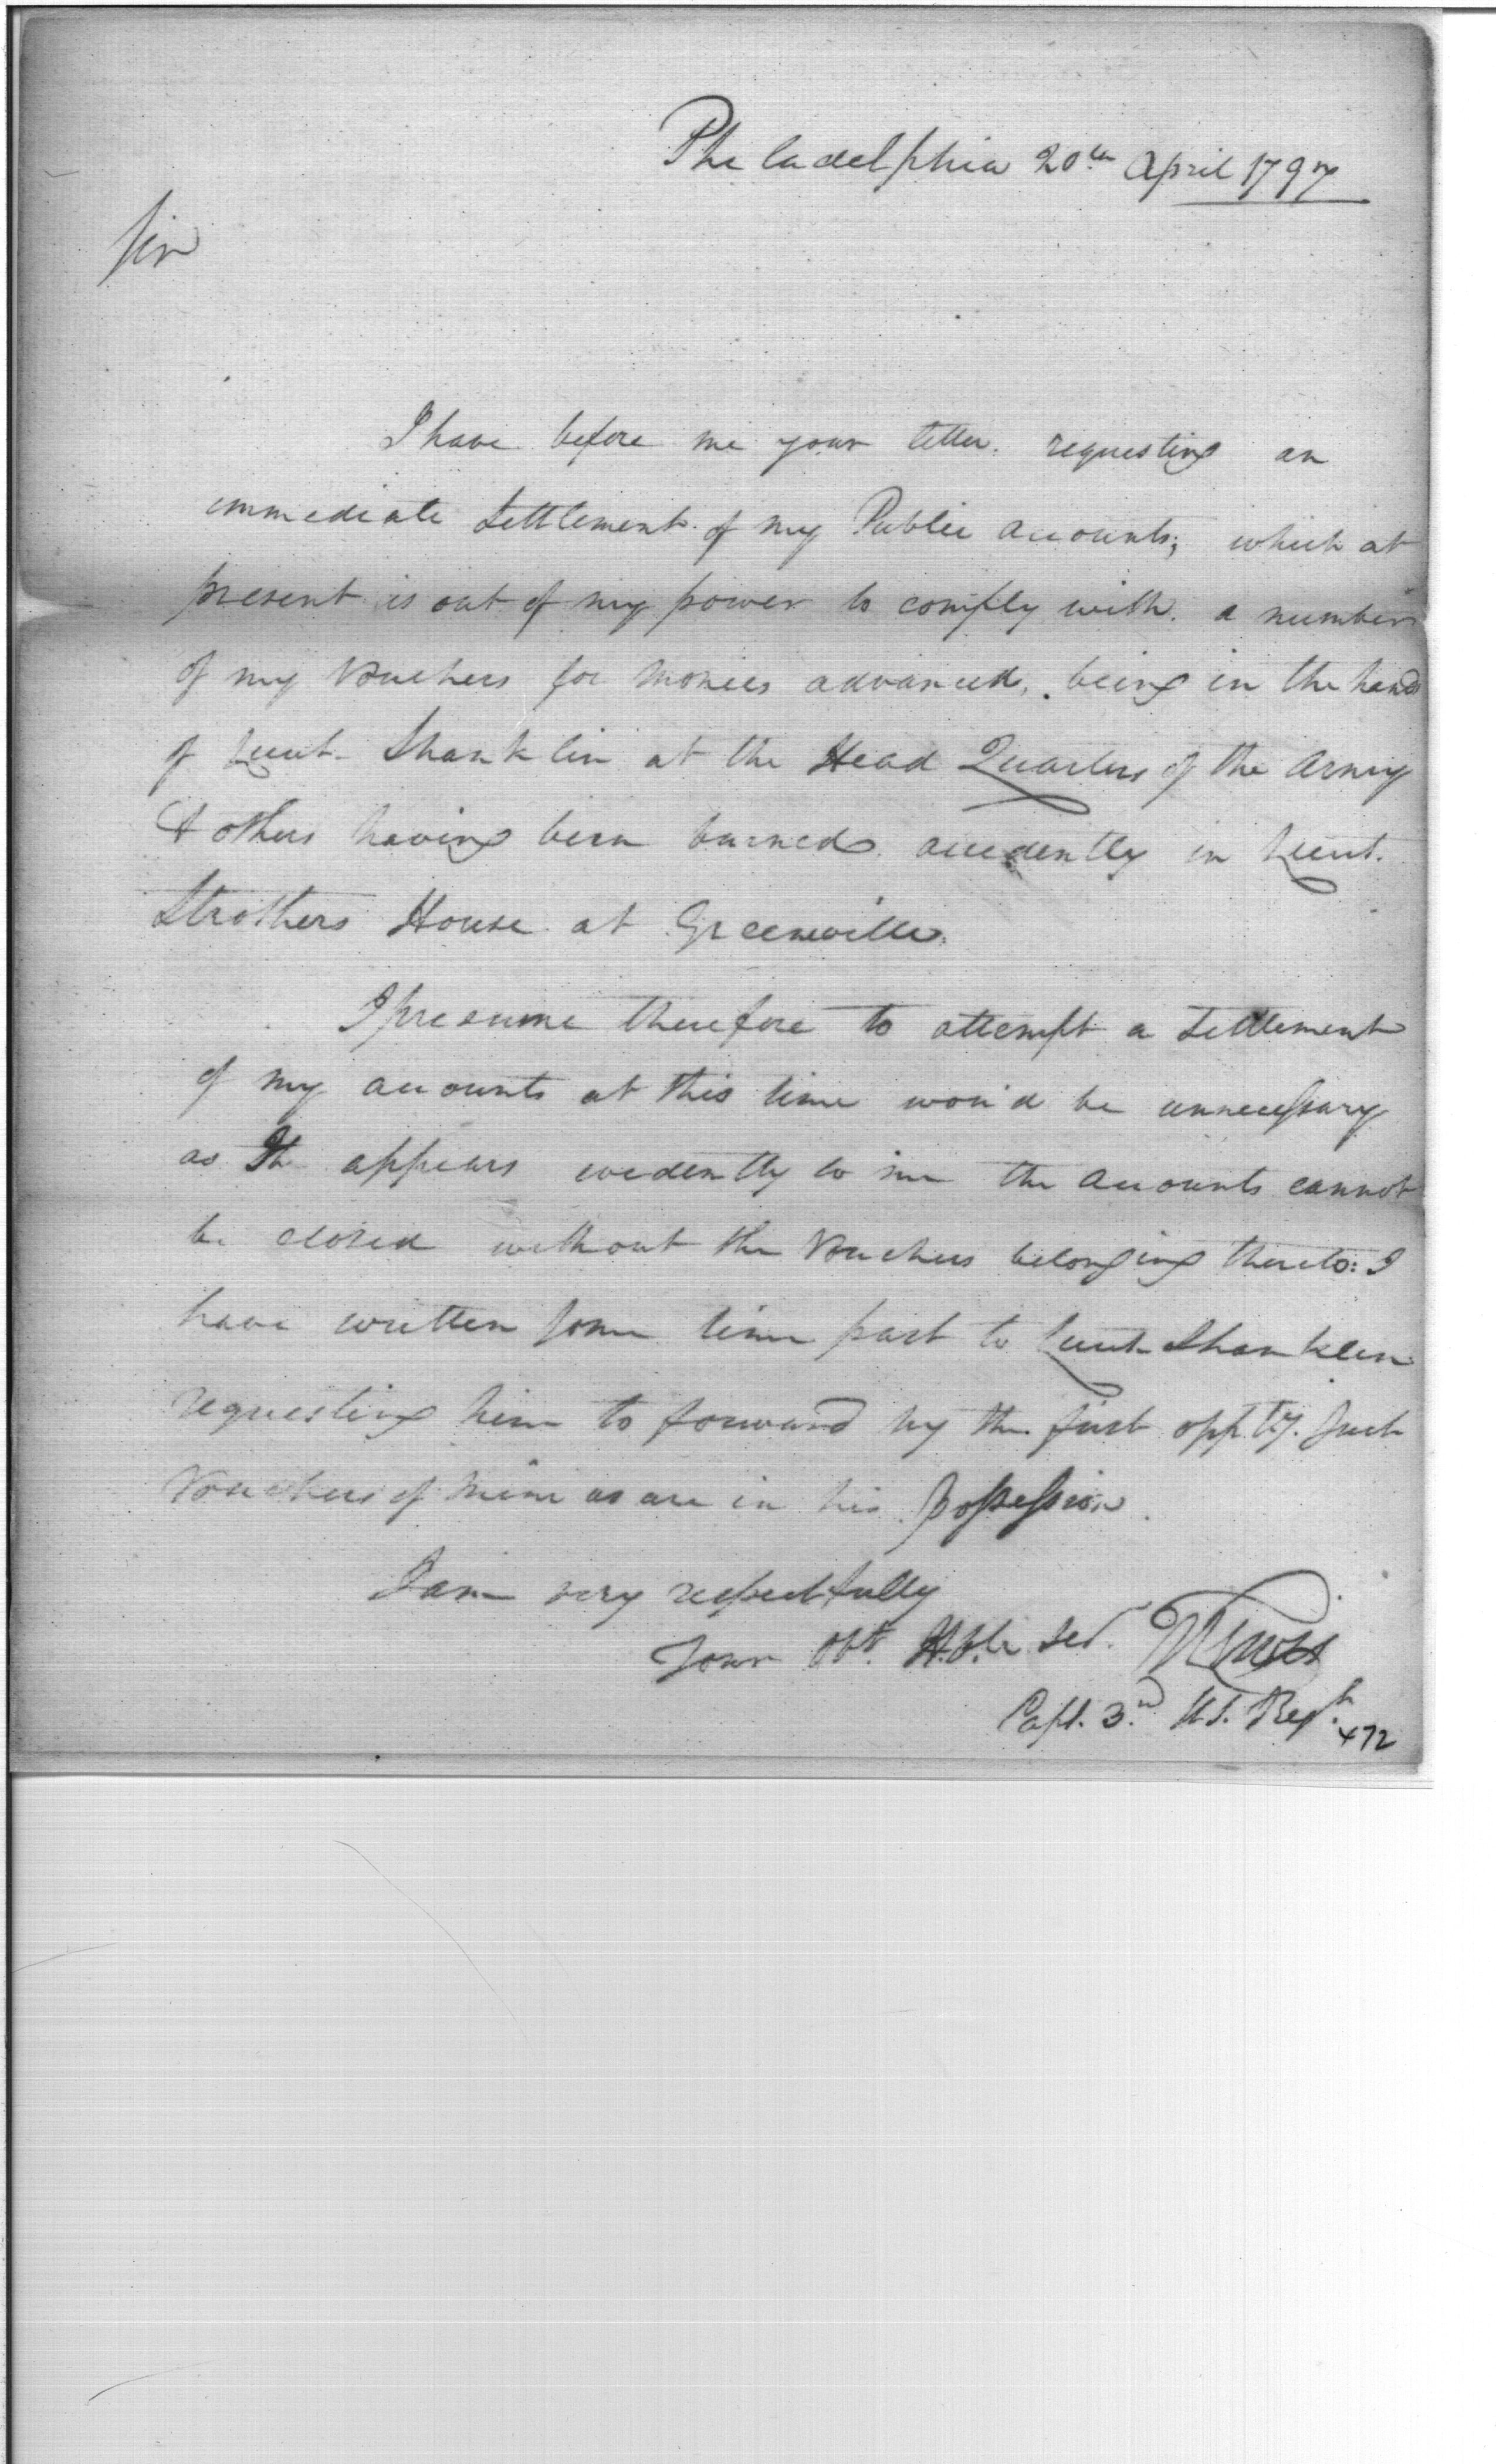 Philadelphia 20th April 1797
Sir
I have before me your letter. requesting an
immediate Settlement. of my Public accounts; which at
present is out of my power to comply with. a number
of my Vouchers for Monies advanced, being in the hands
of Lieut. Shanklin at the Head Quarters of the Army
& others having been burned accedently in Lieut.
Strothers House at Greeneville.
I presume therefore to attempt a Settlement
of my accounts at this time wou'd be unnecessary
as It appears evedently to me the Accounts cannot
be closed without the Vouchers belonging thereto: I
have written some time past to Lieut Shanklin
requesting him to forward by the first oppty. Such
Vouchers of mine as are in his possession.
I am very respectfully
Your Obt. Hble Ser.
Capt. 3rd U.S. Regt.
472